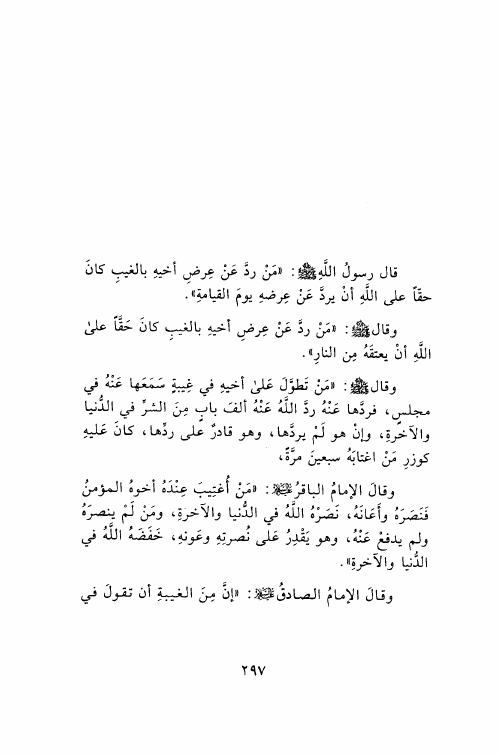 قال رسولُ اللَّهِ ﷺ : «مَنْ ردَّ عَنْ عِرضِ أخيهِ بالغيبِ كانَ
حقّاً على اللَّهِ أنْ يردَّ عَنْ عرضهِ يومَ القيامةِ».
وقال ﷺ : «مَنْ ردَّ عَنْ عِرضِ أخيهِ بالغيبِ كانَ حَقَّاً علىٰ
اللَّهِ أنْ يعتقَهُ مِن النارِ».
وقال ﷺ : «مَنْ تَطوَّلَ عَلىٰ أخيهِ في غِيبةٍ سَمَعَها عَنْهُ في
مجلسٍ، فردَّها عَنْهُ ردَّ اللَّهُ عَنْهُ ألفَ بابٍ مِنَ الشرِّ في الدُّنيا
والآخرةِ، وإنْ هو لَمْ يردَّها، وهو قادرٌ على ردِّها، كانَ عَليهِ
كوزرِ مَنْ اغتابَهُ سبعينَ مرَّةً،
وقالَ الإمامُ الباقرُ : «مَنْ أُغتِيبَ عِنْدَهُ أخوهُ المؤمنُ
فَنَصَرَهُ وأَعَانَهُ، نَصَرْهُ اللَّهُ في الدُّنيا والآخرَةِ، ومَنْ لَمْ ينصرَهُ
ولم يدفعْ عَنْهُ، وهو يَقْدِرُ عَلى نُصرتِهِ وعَونهِ، خَفَضَهُ اللَّهُ في
الدُّنيا والآخرةِ».
وقالَ الإمامُ الصادقُ : «إنَّ مِنَ الغيبةِ أن تقولَ في
٢٩٧